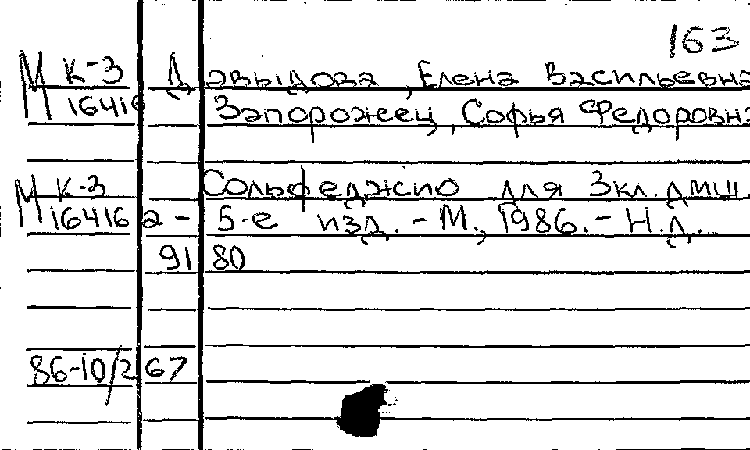 163
М К-3 Давыдова, Елена Васильевна
16416 Запорожец, Софья Федоровна
М К-3 Сольфеджио для 3кл. ДМШ.
16416 а - 5-е изд. - М., 1986. - Н.д.
9180
86-10/267